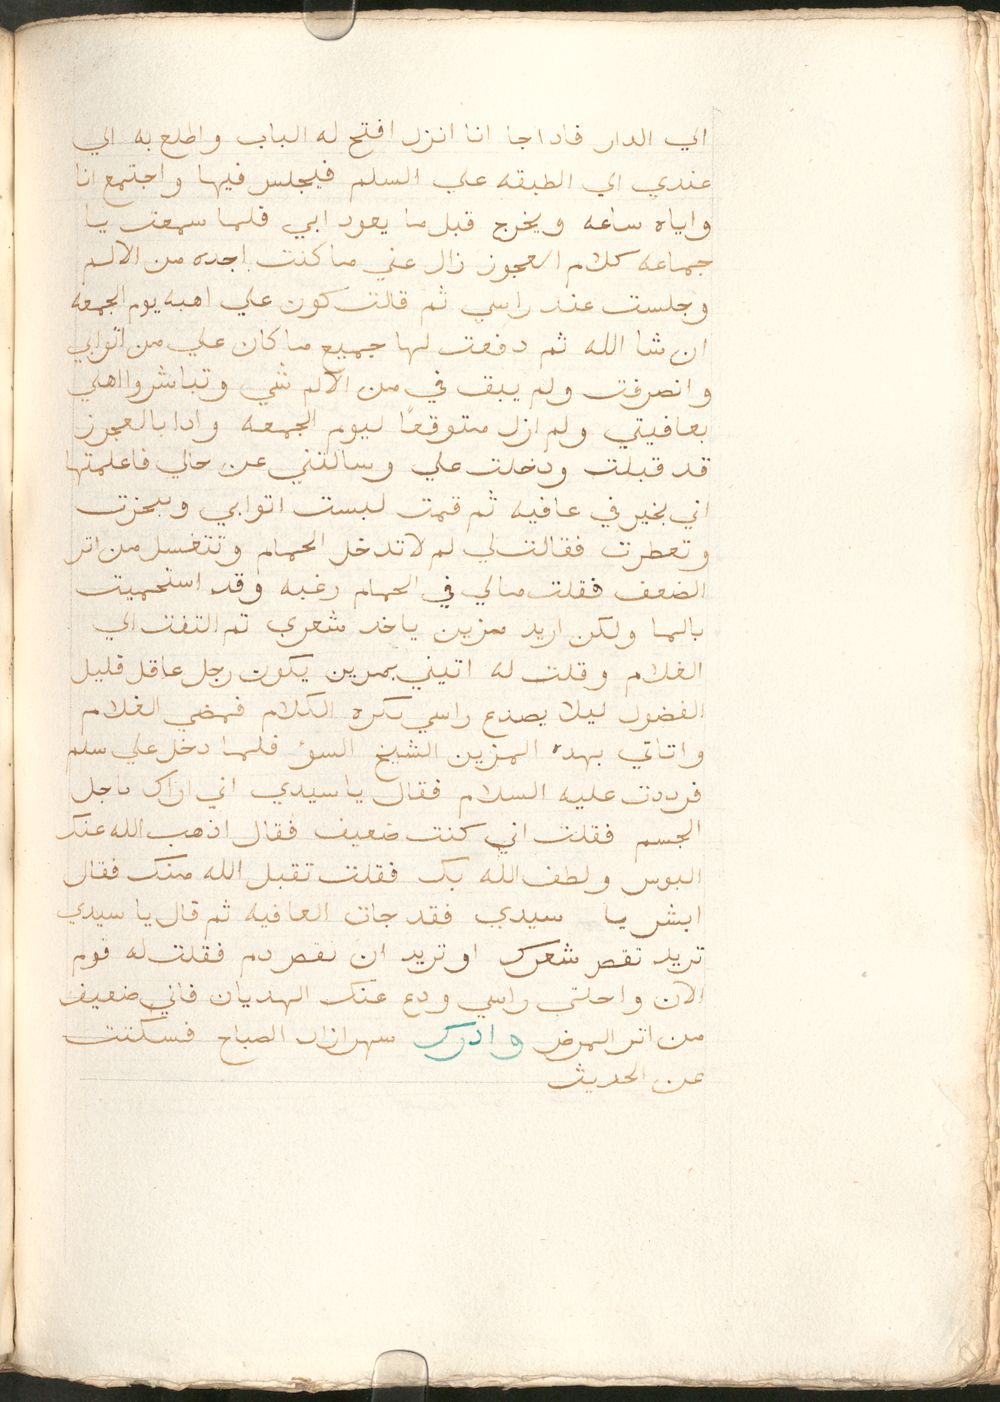 الي الدار فاداجا انا انزل افتح له الباب واطلع به الي
عندي الي الطبقه علي السلم فيجلس فيها واجتمع انا
واياه ساعه ويخرج قبل ما يعود ابي فلما سمعت يا
جماعه كلام العجوز زال عني ما كنت اجده من الالم
وجلست عند راسي ثم قالت كون علي اهبه يوم الجمعه
ان شا الله ثم دفعت لها جميع ما كان علي من اثوابي
وانصرفت ولم يبق في من الالم شي وتباشروا اهلي
بعافيتي ولم ازل متوقعًا ليوم الجمعه وادا بالعجوز
قد قبلت ودخلت علي وسالتني عن حالي فاعلمتها
اني بخير في عافيه ثم قمت لبست اتوابي وتبخرت
وتعطرت فقالت لي لم لا تدخل الحمام وتتغسل من اتر
الضعف فقلت مالي في الحمام رغبه وقد استحميت
بالما ولكن اريد مزين ياخد شعري تم التفت الي
الغلام وقلت له اتيني بمزين يكون رجل عاقل قليل
الفضول ليلا يصدع راسي بكره الكلام فمضي الغلام
واتاني بهده المزين الشيخ السؤ فلما دخل علي سلم
فرددت عليه السلام فقال يا سيدي اني اراك ناحل
الجسم فقلت اني كنت ضعيف فقال ادهب الله عنك
البوس ولطف الله بك فقلت تقبل الله منك فقال
ابشر يا سيدي فقد جات العافيه ثم قال يا سيدي
تريد تقص شعرك او تريد ان نقص دم فقلت له قوم
الان واحلق راسي ودع عنك الهديان فاني ضعيف
من اتر المرض وادرك سهرازاد الصباح فسكتت
عن الحديث